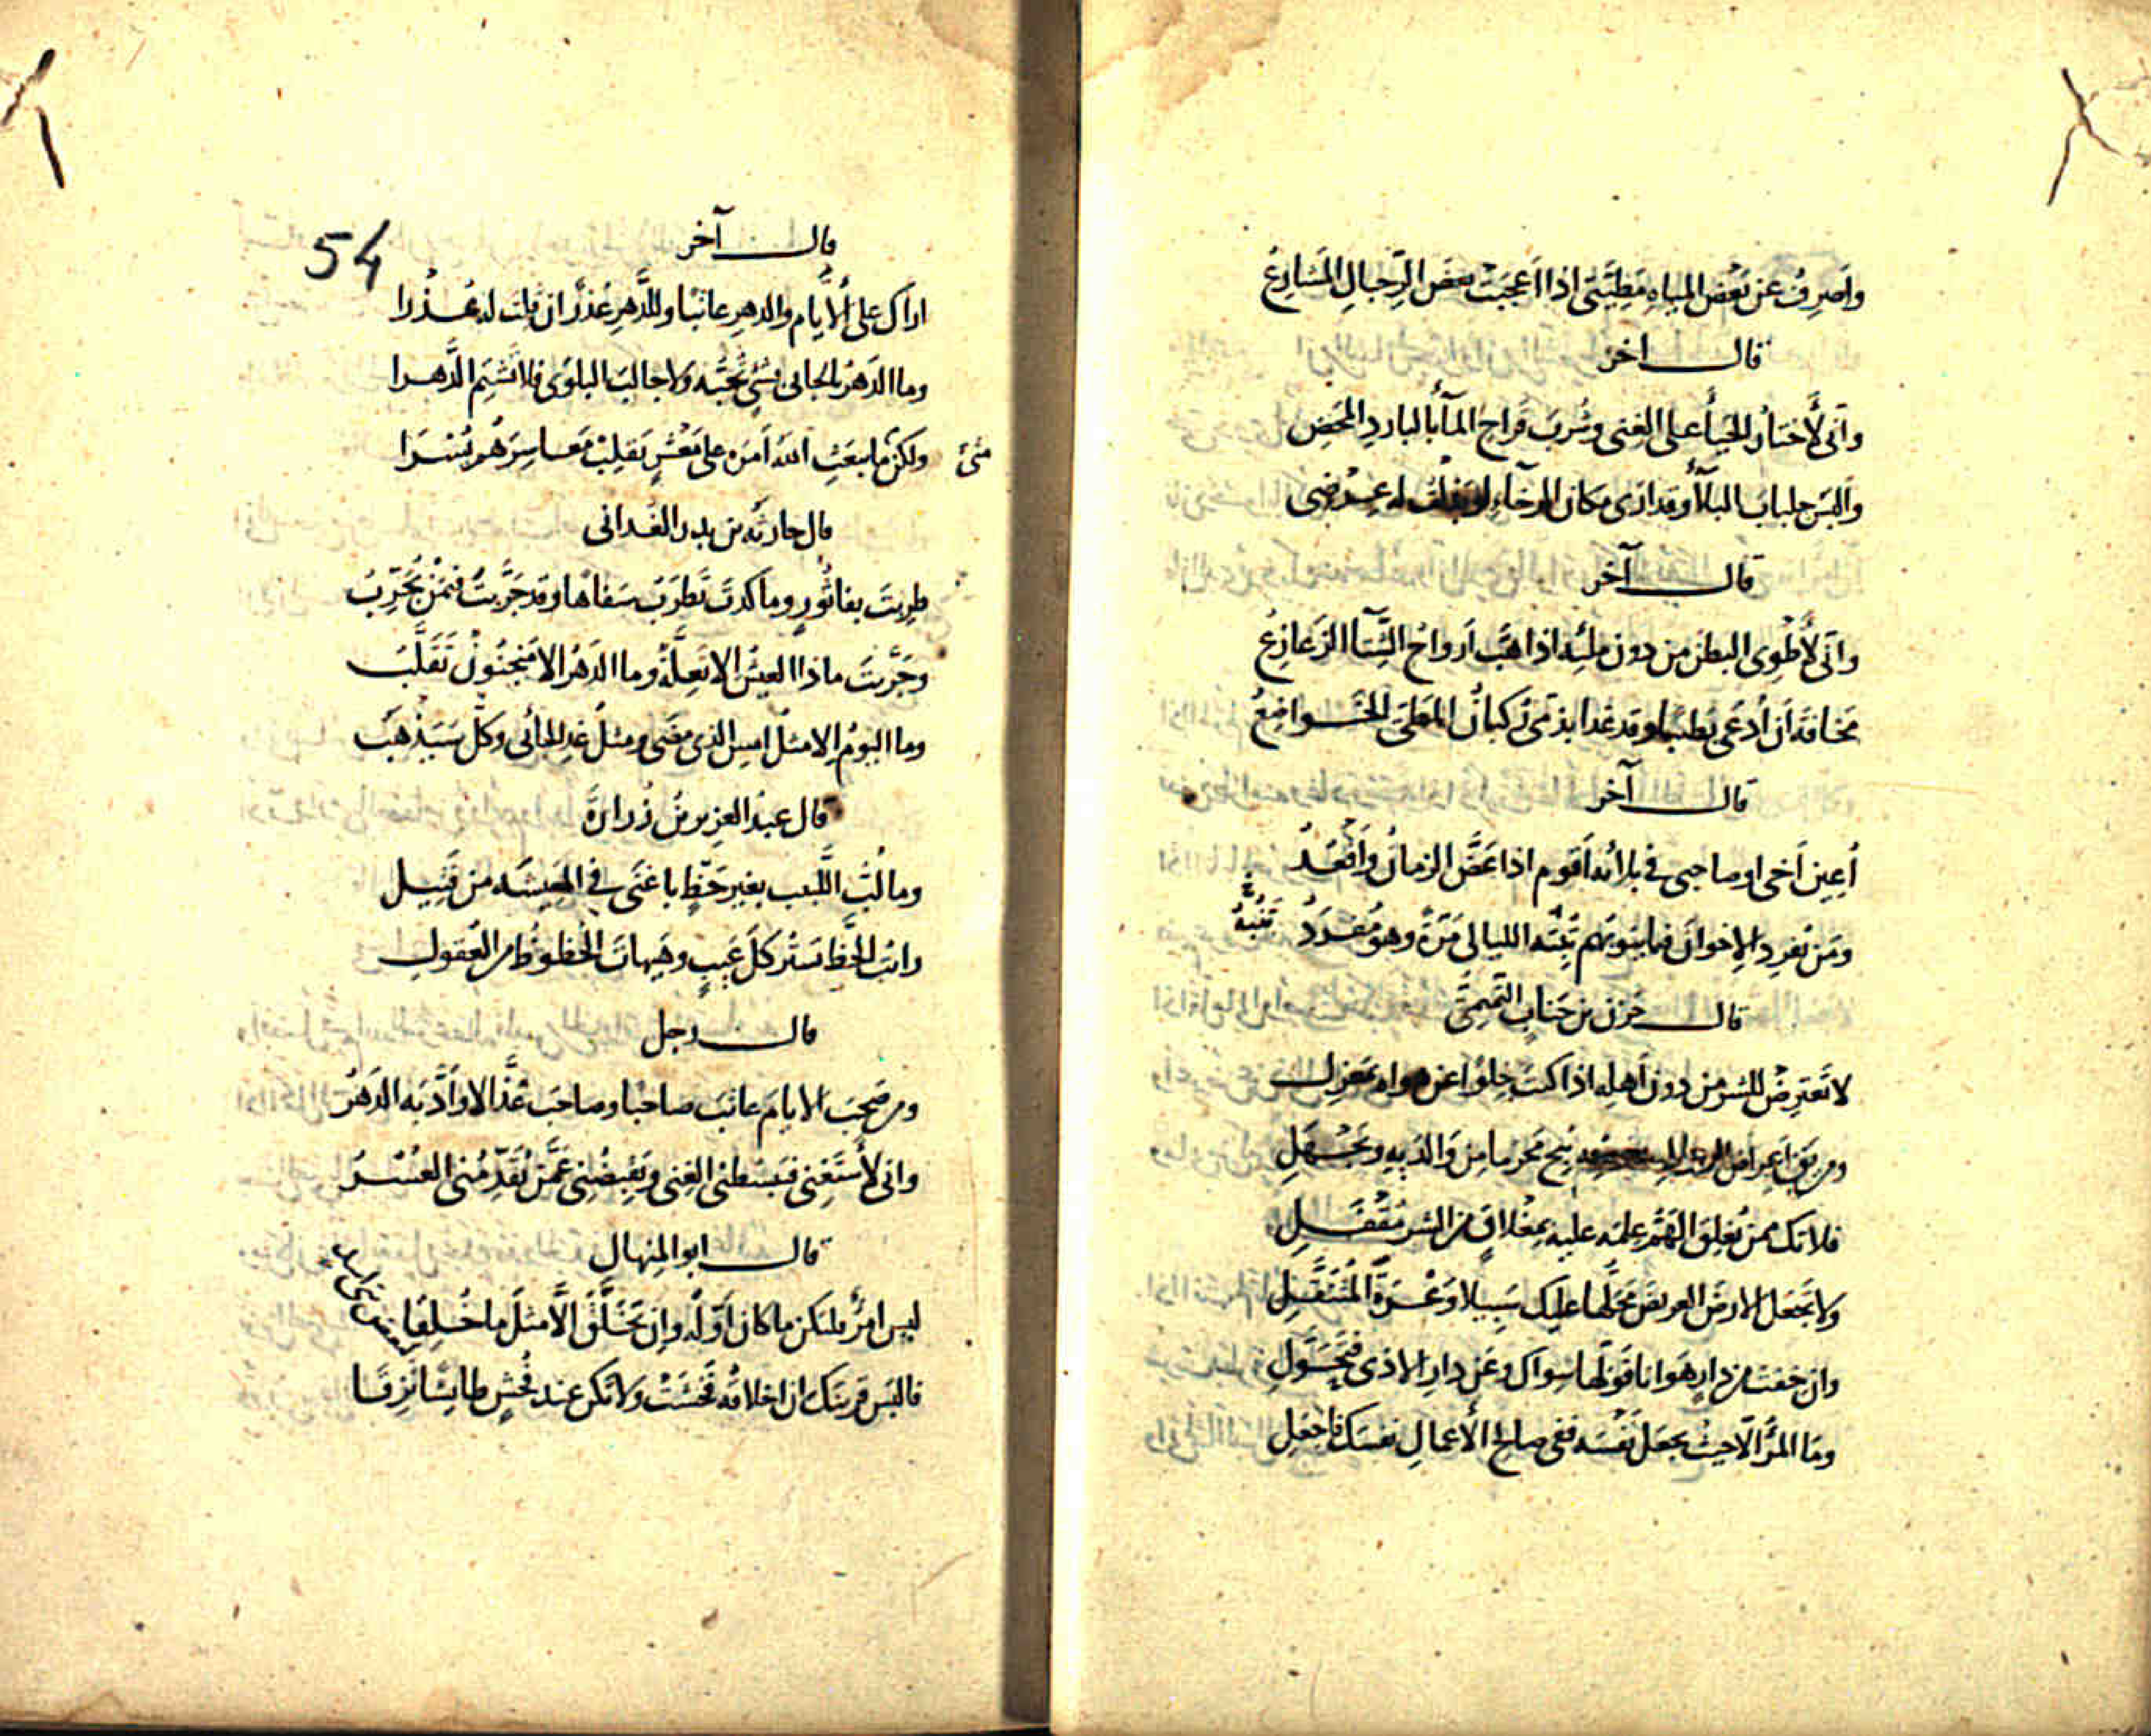 وأصرف عن بعض المياه مطيتي اذا اعجبت بعض الرجال المشارع
قال اخر
واني لأختار الحيأ على الغنى وشرب قراح المآ بالبارد المحض
والبس جلباب البلآ وقد ارى مكان الرخاء لو له عرضي
قال آخر
واني لأطوى البطن من دون مليه اذا هب ارواح الشتآ الزعازع
مخافة أن أدعى بطينا وقد غدا بذمي ركبان المطي الخواضع
قال آخر
أعين أخى او صاحبى فى بلائه اقوم اذا عض الزمان واقعد
ومن يفرد الاخوان فيما ينوبهم تنبه الليالى مرة وهو مفرد
تنبه
قال حزن بن جناب التميمي
لا تعترض للشر من دون أهله اذا كنت خلوا عن هواه بمعزل
ومن يتق اعراض محرما من والديه ويجهل
فلاتك ممن يغلق الهم علمه عليه بمغلاق من الشر مقفل
ولا تجعل الارض العريض محلها عليك سبيلا وعرة المتنقل
وان خفت من دار هوانا فولها سواك وعن دار الاذى فتحول
وما المرء الا حيث يجعل نفسه ففى صالح الأعمال نفسك فاجعل
54
قال آخر
اراك على الأيام والدهر عاتبا وللدهر عذر ان قبلت له عذرا
وما الدهر بالجانى بشئ تحبه ولا جالب البلوى فلا تشتم الدهرا
ولكن ما يبعث الله أمره على معشر يقلب مياسرهم عسرا
متى
قال حارثة بن بدر الغدانى
طربت بفاثور وما كدت تطرب سفاها وقد جربت فيمن يجرب
وجربت ماذا العيش الا تعلة وما الدهر الا منجنون تقلب
وما اليوم الا مثل امس الذى مضى ومثل غد الجائى وكل سيذهب
قال عبد العزيز بن زرارة
وما لب اللبيب بغير حظ باغنى فى المعيشة من فتيل
رايت الحظ تستر كل عيب وهيهات الحظوظ من العقول
قال رجل
ومن صحب الايام عاتب صاحبا وصاحب عذالا وأدبه الدهر
وانى لأستغنى فيبسطنى الغنى ويقبضنى عمن يقدمنى العسر
قال ابو المنهال
ليس امرؤ ما كان أوله وان تخلق الا مثل ما خلقا
فالبس قرينك ان اخلاقه فحشت ولا تكن عند فحش طايشا نزقا